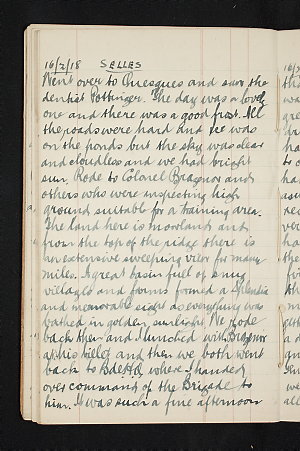 16/2/18 SELLES
Went over to Quesques and saw the
dentist Pottinger. The day was a lovely
one and there was a good frost. All
the roads were hard and ice was
on the ponds but the sky was clear
and cloudless and we had bright
sun. Rode to Colonel and
others who were inspecting high
ground suitable for a training area.
The land here is moorland and
from the top of the ridge there is
an extensive sweeping view for many
miles. A great basin full of snug
villages and farms formed a splendid
and memorable sight as everything was
bathed in golden sunlight. We rode
back then and I lunched with
at his billet and then we both went
back to where I handed
over command of the Brigade to
him. It was such a fine afternoon